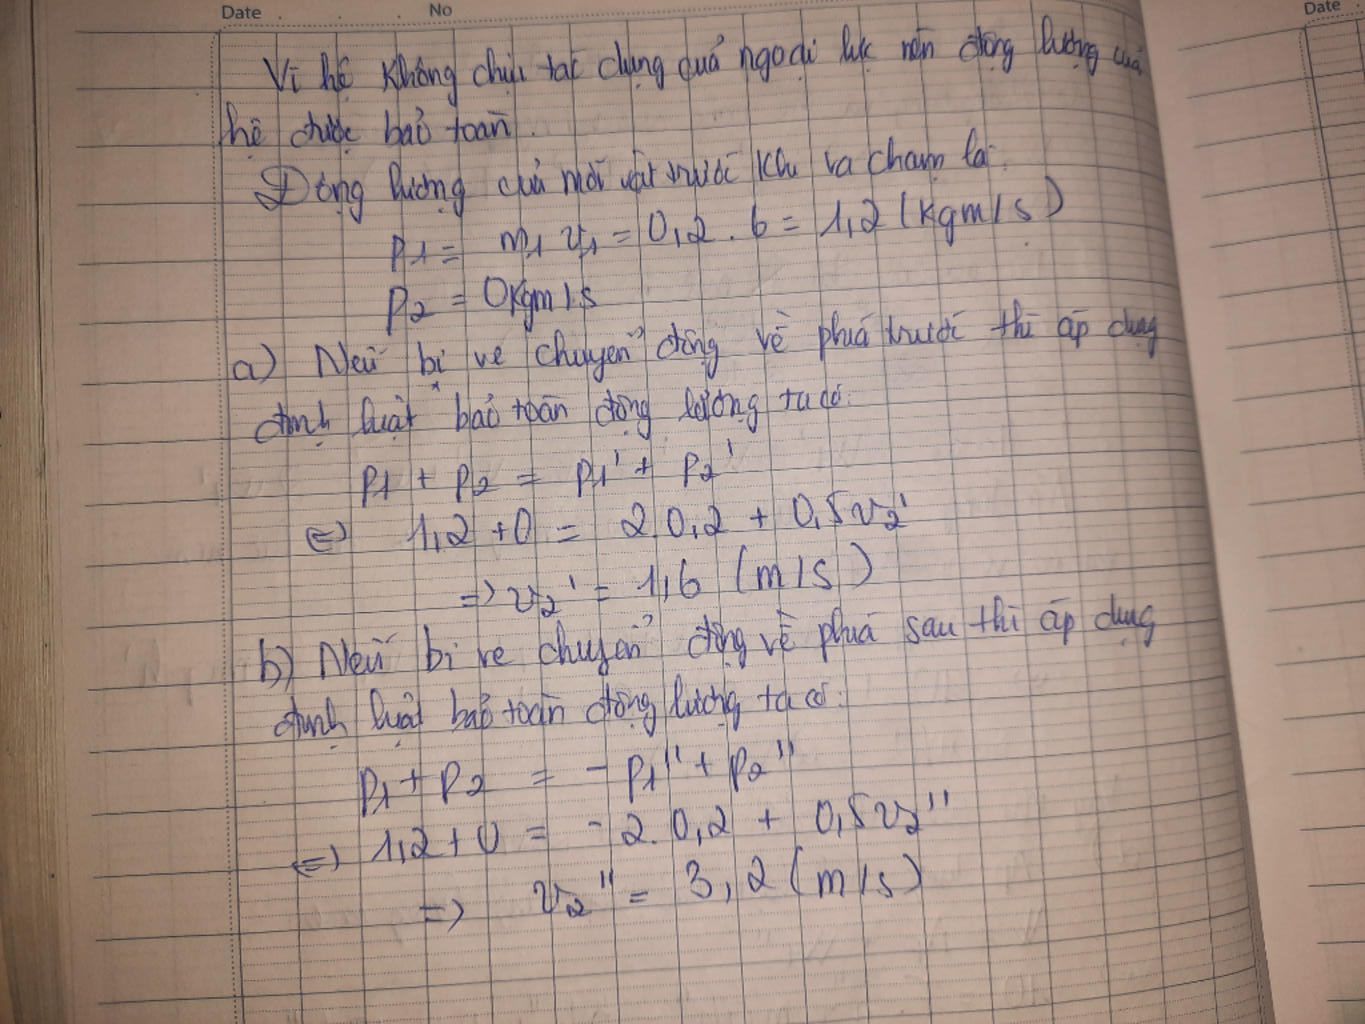 Date No
Date
Vì hệ không chịu tác dụng quả ngoại lực nên động lượng của
hệ được bảo toàn.
Động lượng của mỗi vật trước khi va chạm là:
p1 = m1 v1 = 0,2 . 6 = 1,2 (kgm/s)
p2 = 0kgm/s
a) Nếu bi ve chuyển động về phía trước thì áp dụng
định luật bảo toàn động lượng ta có:
p1 + p2 = p1' + p2'
⇔ 1,2 + 0 = 2.0,2 + 0,5v2'
=> v2' = 1,6 (m/s)
b) Nếu bi ve chuyển động về phía sau thì áp dụng
định luật bảo toàn động lượng ta có:
p1 + p2 = - p1'' + p2''
⇔ 1,2 + 0 = - 2.0,2 + 0,5v2''
=> v2'' = 3,2 (m/s)